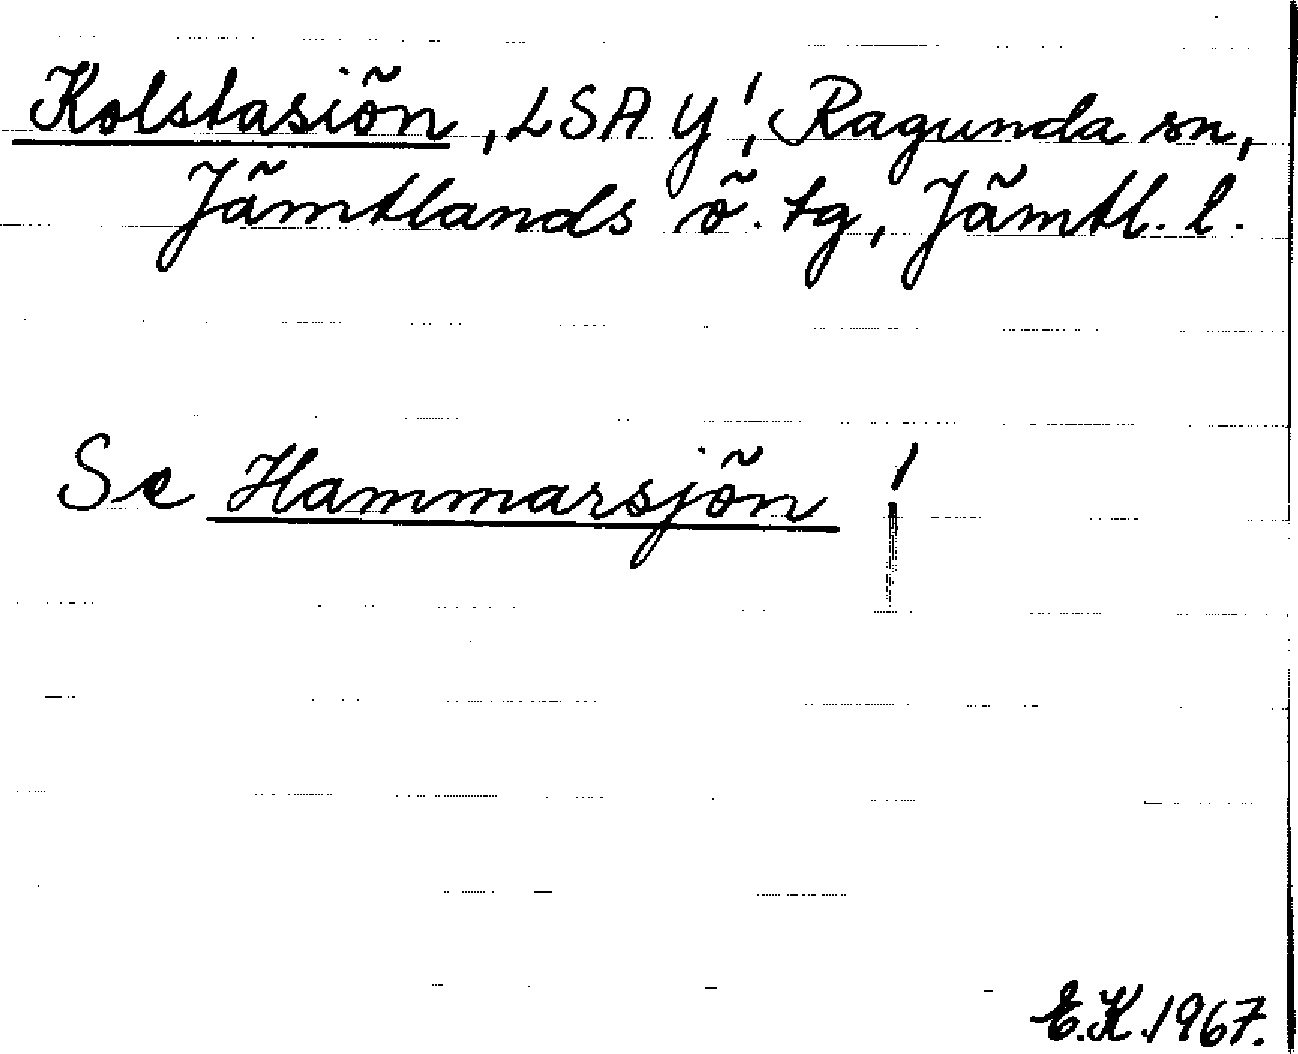 Kolstasiön, LSA Y!, Ragunda sn,
Jämtlands ö. tg, Jämtl. l.
Se Hammarsjön !
E.K. 1967.